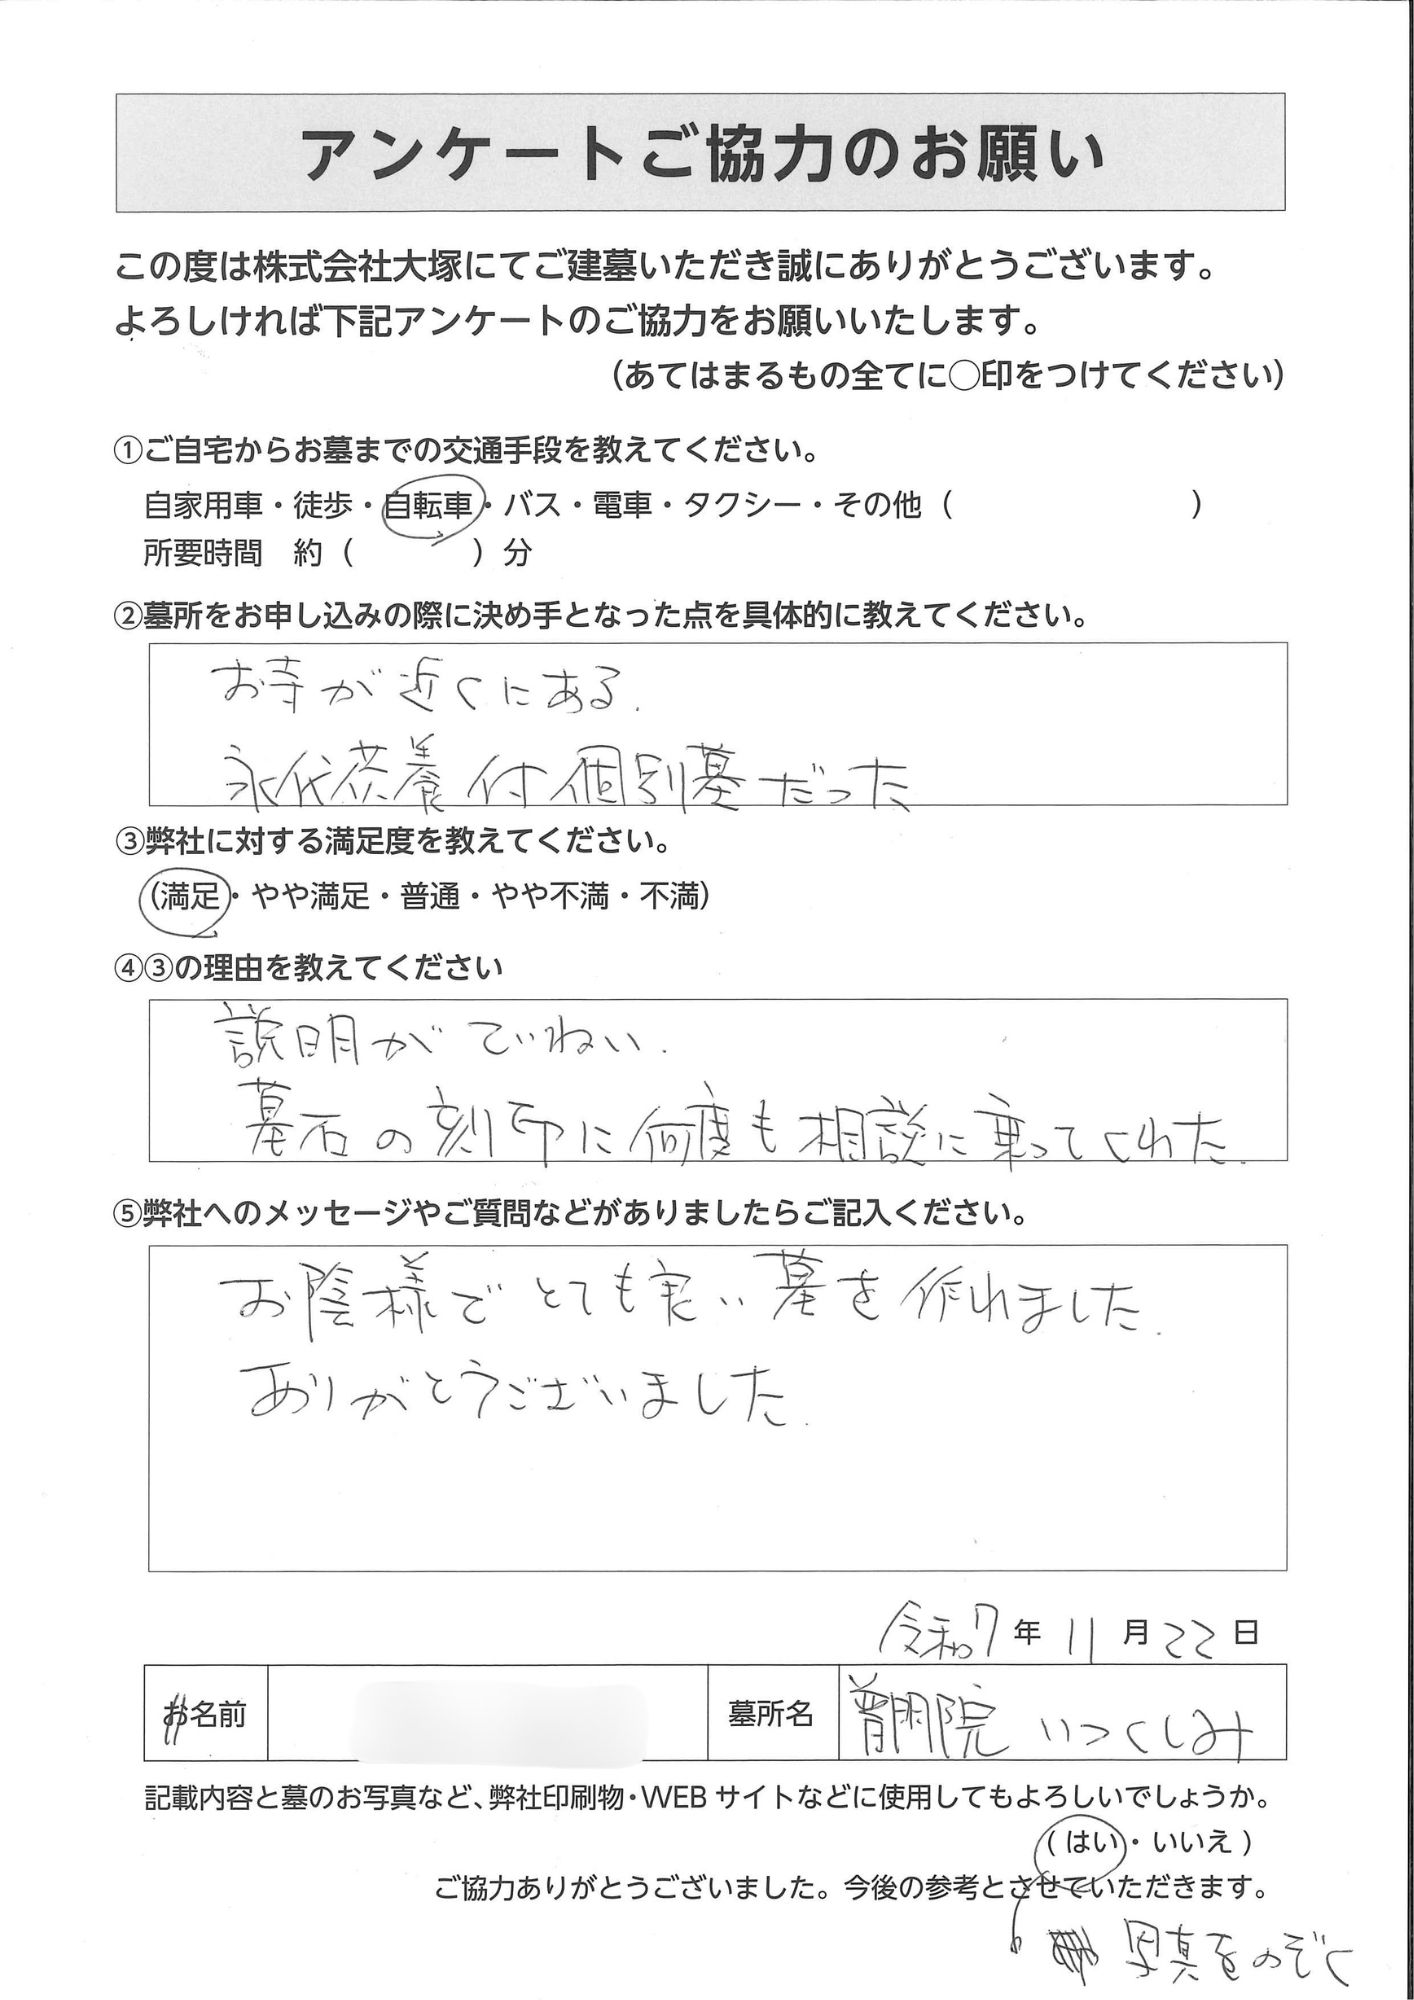 アンケートご協力のお願い
この度は株式会社大塚にてご建墓いただき誠にありがとうございます。
よろしければ下記アンケートのご協力をお願いいたします。
（あてはまるもの全てに〇印をつけてください）
①ご自宅からお墓までの交通手段を教えてください。
自家用車・徒歩・自転車・バス・電車・タクシー・その他（　　　　　　　　）
所要時間　約（　　　　）分
②墓所をお申し込みの際に決め手となった点を具体的に教えてください。
お寺が近くにある.
永代供養付個別墓だった
③弊社に対する満足度を教えてください。
（満足・やや満足・普通・やや不満・不満）
④③の理由を教えてください
説明がていねい.
墓石の刻印に何度も相談に乗ってくれた.
⑤弊社へのメッセージやご質問などがありましたらご記入ください。
お陰様でとても良い墓を作れました.
ありがとうございました.
令和7年11月22日
お名前　墓所名　普門院 いつくしみ
記載内容と墓のお写真など、弊社印刷物・WEBサイトなどに使用してもよろしいでしょうか。
（はい・いいえ）
ご協力ありがとうございました。今後の参考とさせていただきます。
写真をのぞく